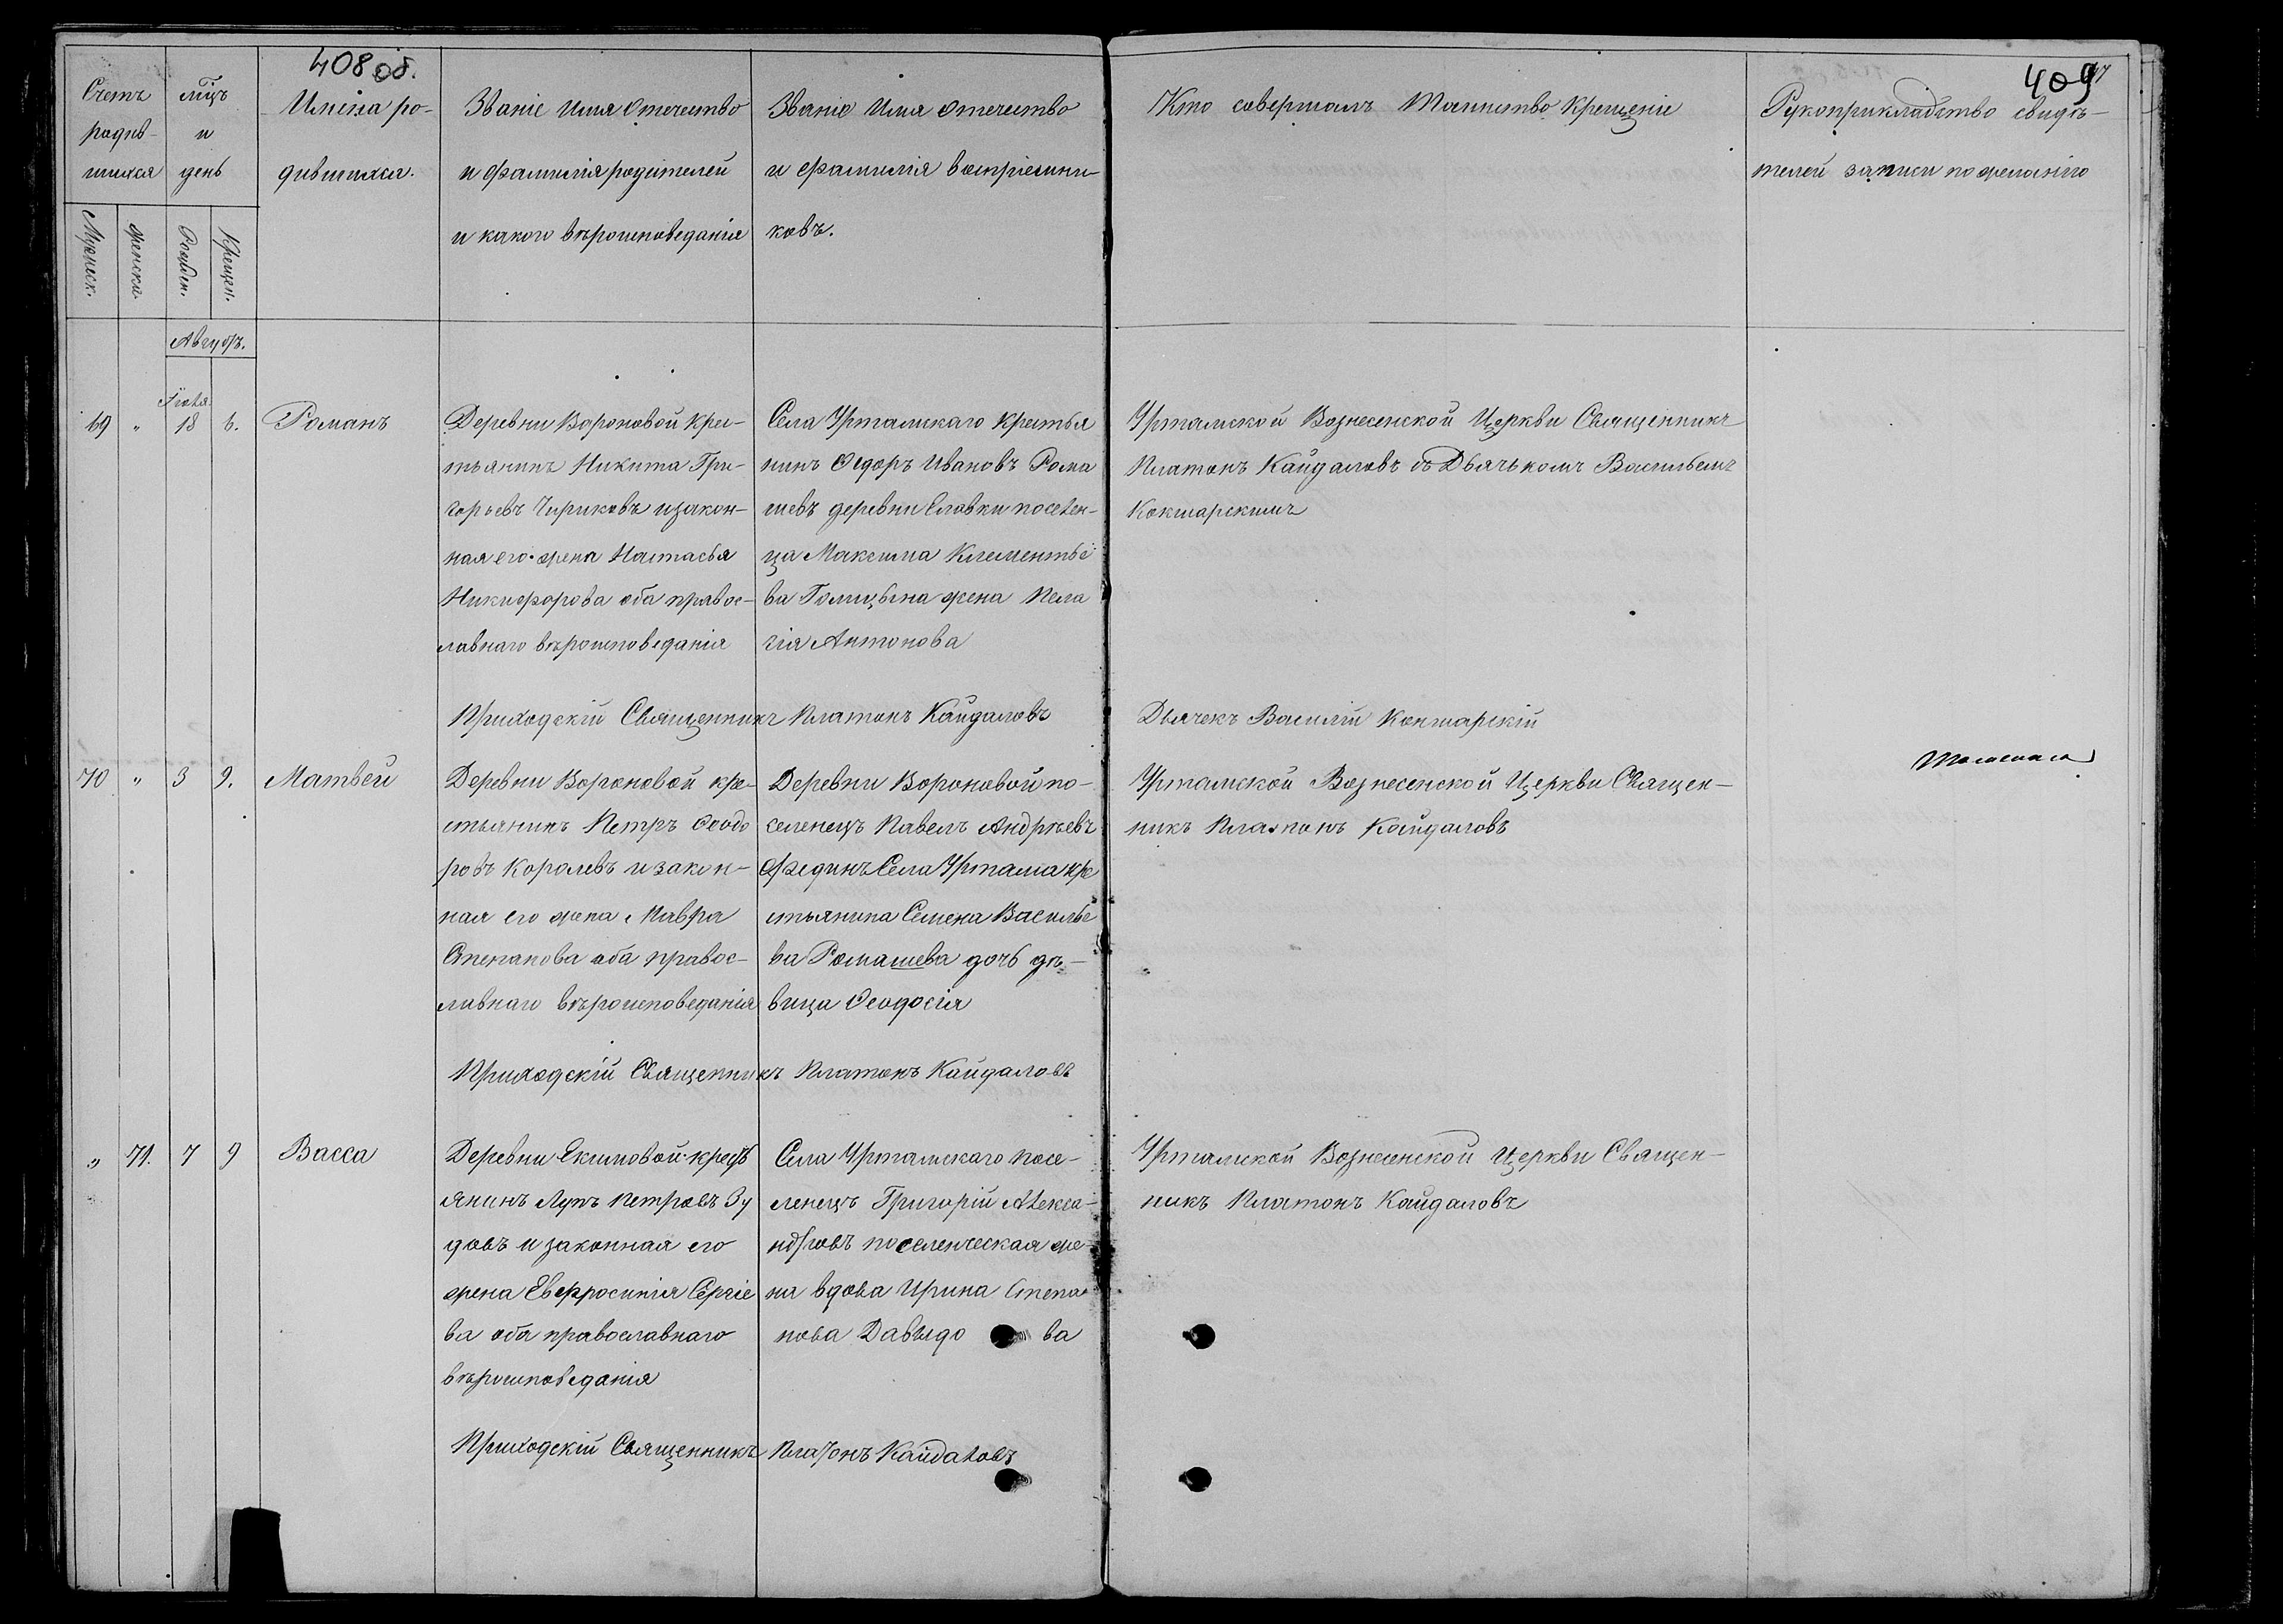 408 об.
409
Счетъ родив-шихся
Мужеск.
женска
мѣцъ и день
Рожден.
Крещен.
Имена ро-
дившихся.
Званіе имя отечество
и фамилія родителей
и какого вѣроисповеданія
Званіе имя отечество
и фамилія воспріемни-
ковъ.
Кто совершалъ таинство крещенія
Рукоприкладство свидѣ-
телей записи по желанію
Августъ.
69 " Іюля 18 6. Романъ
Деревни Вороновой крес-
тьянинъ Никита Гри-
горьевъ Чириковъ и закон-
ная его жена Настасья
Никифорова оба правос-
лавнаго вѣроисповеданія
Села Уртамскаго крестья
нинъ Ѳедоръ Ивановъ Рома
шевъ деревни Еловки поселен-
ца Максима Клементье
ва Голицына жена Пела
гія Антонова
Уртамской Вознесенской Церкви Священникъ
Платонъ Кайдаловъ съ Дьячькомъ Васильемъ
Кокшарскимъ
Приходскій Священникъ Платонъ Кайдаловъ
Дьячекъ Василій Кокшарскій
70 " 3 9. Матвей
Деревни Вороновой кре-
стьянинъ Петръ Ѳеодо
ровъ Королевъ и закон-
ная его жена Мавра
Степанова оба правос-
лавнаго вѣроисповеданія
Деревни Вороновой по-
селенецъ Павелъ Андрѣевъ
Фединъ Села Уртама кре
стьянина Семена Василье
ва Ромашева дочь дѣ-
вица Ѳеодосія
Уртамской Вознесенской Церкви Священ-
никъ Платонъ Кайдаловъ
Приходскій Священникъ Платонъ Кайдаловъ
" 71. 7 9 Васса
Деревни Екимовой крест
янинъ Лупъ Петровъ Зу
довъ и законная его
жена Евфросинія Сергіе
ва оба православнаго
вѣроисповеданія
Села Уртамскаго посе-
ленецъ Григорій Алекса-
ндровъ поселенческая же-
на вдова Ирина Степа
нова Давыдо ва
Уртамской Вознесенской Церкви Священ-
никъ Платонъ Кайдаловъ
Приходскій Священникъ Платонъ Кайдаловъ